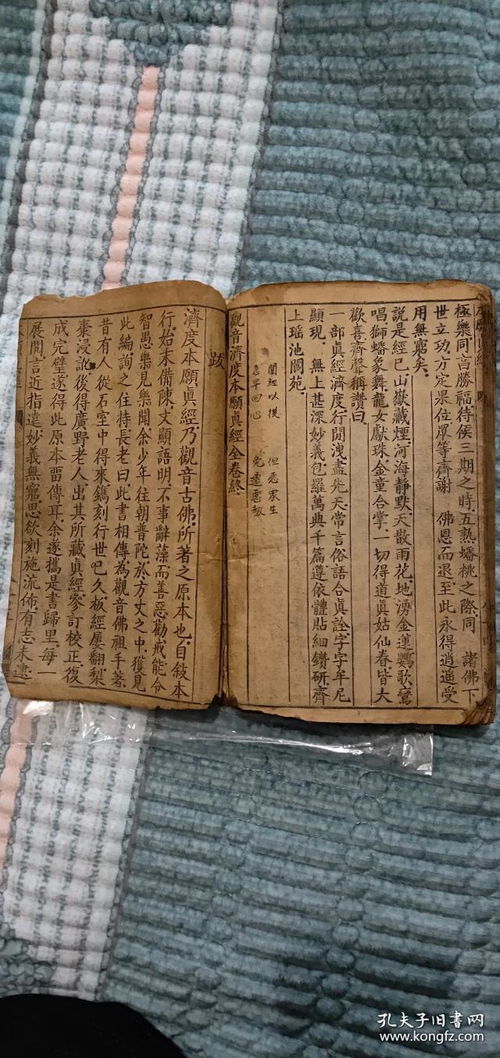 極樂同言勝福待侯三期之時五熟蟠桃之際同　諸佛下
世立功方定果位眾等齊謝　佛恩而退至此永得逍遥受
用無窮矣
說是經已山嶽藏煙河海靜默天散雨花地湧金蓮鸚歌鸞
唱獅蟠象舞龍女獻珠金童合掌一切得道真姑仙眷皆大
歡喜齊聲稱讚曰
一部真經濟度行闡洩盡先天常言俗語合真詮字字牟尼
顯現　無上甚深妙義包羅萬典千篇遵依體貼細鑽研齊
上瑶池閬苑
但愿眾生
急早回心
觀音濟度本願真經全卷終
跋
濟度本願真經乃觀音古佛所著之原本也自敘本
行始末備陳文顯語明不事辭藻而善惡勸戒能令
智愚樂見樂聞余少年往朝普陀於方丈之中獲見
此編詢之住持長老曰此書相傳為觀音佛祖手著
昔有人從石室中得來鐫刻行世巳久板經屢翻梨
棗浸訛後得廣野老人出其所藏真經參訂校正復
成完璧遂得此原本畱傳耳余遂攜是書歸里每一
展閱言近指遠妙義無窮思欲刻施流佈有志未逮
孔夫子旧书网
www.kongfz.com